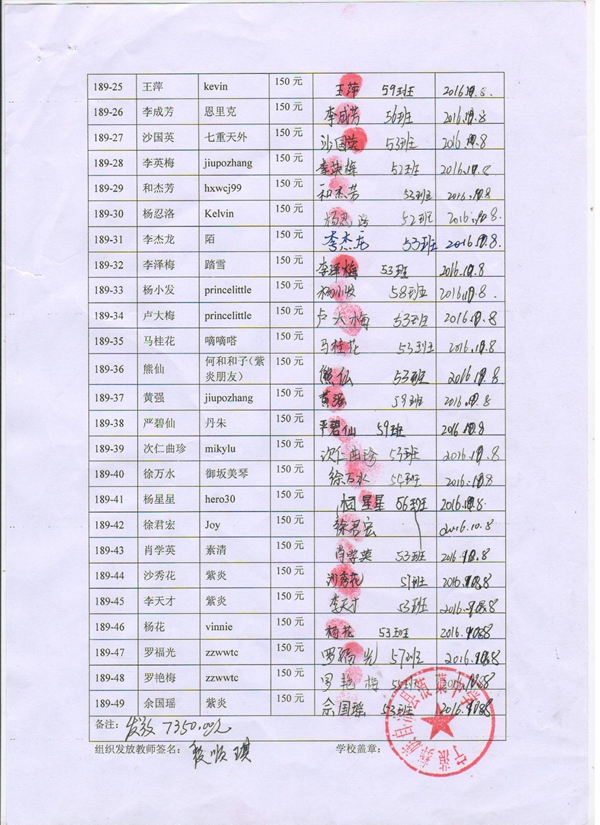 189-25 王萍 kevin 150 元 王萍 59班 2016.10.8.
189-26 李成芳 恩里克 150 元 李成芳 56班 2016.10.8
189-27 沙国英 七重天外 150 元 沙国英 53班 2016.10.8
189-28 李英梅 jiupozhang 150 元 李英梅 52班 2016.10.8
189-29 和杰芳 hxwcj99 150 元 和杰芳 53班 2016.10.8
189-30 杨忍洛 Kelvin 150 元 杨忍洛 52班 2016.10.8
189-31 李杰龙 陌 150 元 李杰龙 53班 2016.10.8.
189-32 李泽梅 踏雪 150 元 李泽梅 53班 2016.10.8
189-33 杨小发 princelittle 150 元 杨小发 58班 2016.10.8.
189-34 卢大梅 princelittle 150 元 卢大梅 53班 2016.10.8
189-35 马桂花 嘀嘀嗒 150 元 马桂花 53班 2016.10.8
189-36 熊仙 何和和子(紫炎朋友) 150 元 熊仙 53班 2016.10.8
189-37 黄强 jiupozhang 150 元 黄强 59班 2016.10.8
189-38 严碧仙 丹朱 150 元 严碧仙 59班 2016.10.8
189-39 次仁曲珍 mikylu 150 元 次仁曲珍 53班 2016.10.8
189-40 徐万水 御坂美琴 150 元 徐万水 2016.10.8
189-41 杨星星 hero30 150 元 杨星星 56班 2016.10.8
189-42 徐君宏 Joy 150 元 徐君宏 2016.10.8
189-43 肖学英 素清 150 元 肖学英 53班 2016.10.8
189-44 沙秀花 紫炎 150 元 沙秀花 57班 2016.10.8
189-45 李天才 紫炎 150 元 李天才 53班 2016.10.8
189-46 杨花 vinnie 150 元 杨花 53班 2016.10.8
189-47 罗福光 zzwwtc 150 元 罗福光 57班 2016.10.8
189-48 罗艳梅 zzwwtc 150 元 罗艳梅 2016.10.8
189-49 余国瑶 紫炎 150 元 余国瑶 53班 2016.10.8
备注: 发放 7350.00元
组织发放教师签名: 学校盖章:
宁蒗彝族自治县 中学